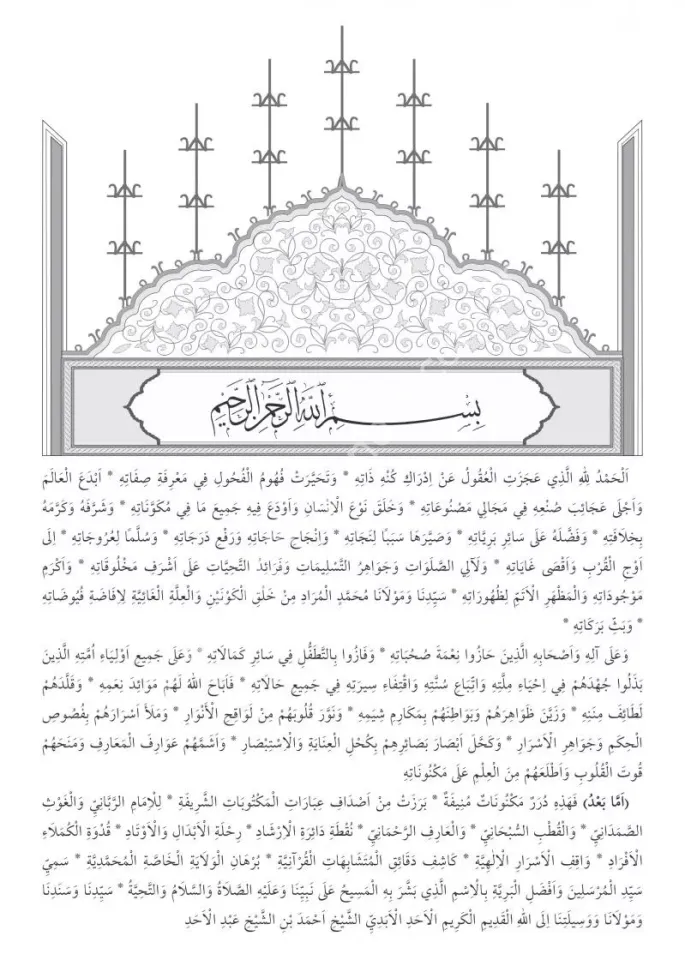 بِسْمِ اللهِ الرَّحْمٰنِ الرَّحِيمِ
اَلْحَمْدُ لِلهِ الَّذِي عَجَزَتِ الْعُقُولُ عَنْ اِدْرَاكِ كُنْهِ ذَاتِهِ * وَتَحَيَّرَتْ فُهُومُ الْفُحُولِ فِي مَعْرِفَةِ صِفَاتِهِ * اَبْدَعَ الْعَالَمَ
وَاَجْلَى عَجَائِبَ صُنْعِهِ فِي مَجَالِي مَصْنُوعَاتِهِ * وَخَلَقَ نَوْعَ الْاِنْسَانِ وَاَوْدَعَ فِيهِ جَمِيعَ مَا فِي مُكَوَّنَاتِهِ * وَشَرَّفَهُ وَكَرَّمَهُ
بِخِلَافَتِهِ * وَفَضَّلَهُ عَلَى سَائِرِ بَرِيَّاتِهِ * وَصَيَّرَهَا سَبَبًا لِنَجَاتِهِ * وَاِنْجَاحِ حَاجَاتِهِ وَرَفْعِ دَرَجَاتِهِ * وَسُلَّمًا لِعُرُوجَاتِهِ * اِلَى
اَوْجِ الْقُرْبِ وَاَقْصَى غَايَاتِهِ * وَلَآلِي الصَّلَوَاتِ وَجَوَاهِرِ التَّسْلِيمَاتِ وَفَرَائِدُ التَّحِيَّاتِ عَلَى اَشْرَفِ مَخْلُوقَاتِهِ * وَاَكْرَمِ
مَوْجُودَاتِهِ وَالْمَظْهَرِ الْاَتَمِّ لِظُهُورَاتِهِ * سَيِّدِنَا وَمَوْلَانَا مُحَمَّدٍ الْمُرَادِ مِنْ خَلْقِ الْكَوْنَيْنِ وَالْعِلَّةِ الْغَائِيَّةِ لِاِفَاضَةِ فُيُوضَاتِهِ
* وَبَثِّ بَرَكَاتِهِ *
وَعَلَى آلِهِ وَاَصْحَابِهِ الَّذِينَ حَازُوا نِعْمَةَ صُحْبَاتِهِ * وَفَازُوا بِالتَّطَفُّلِ فِي سَائِرِ كَمَالَاتِهِ * وَعَلَى جَمِيعِ اَوْلِيَاءِ اُمَّتِهِ الَّذِينَ
بَذَلُوا جُهْدَهُمْ فِي اِحْيَاءِ مِلَّتِهِ وَاتِّبَاعِ سُنَّتِهِ وَاقْتِفَاءِ سِيرَتِهِ فِي جَمِيعِ حَالَاتِهِ * فَاَبَاحَ اللهُ لَهُمْ مَوَائِدَ نِعَمِهِ * وَقَلَّدَهُمْ
لَطَائِفَ مِنَنِهِ * وَزَيَّنَ ظَوَاهِرَهُمْ وَبَوَاطِنَهُمْ بِمَكَارِمِ شِيَمِهِ * وَنَوَّرَ قُلُوبَهُمْ مِنْ لَوَاقِحِ الْأَنْوَارِ * وَمَلَأَ اَسْرَارَهُمْ بِفُصُوصِ
الْحِكَمِ وَجَوَاهِرِ الْاَسْرَارِ * وَكَحَّلَ اَبْصَارَ بَصَائِرِهِمْ بِكُحْلِ الْعِنَايَةِ وَالْاِسْتِبْصَارِ * وَاَشَمَّهُمْ عَوَارِفَ الْمَعَارِفِ وَمَنَحَهُمْ
قُوتَ الْقُلُوبِ وَاَطْلَعَهُمْ مِنَ الْعِلْمِ عَلَى مَكْنُونَاتِهِ
(اَمَّا بَعْدُ) فَهٰذِهِ دُرَرٌ مَكْنُونَاتٌ مُنِيفَةٌ * بَرَزَتْ مِنْ اَصْدَافِ عِبَارَاتِ الْمَكْتُوبَاتِ الشَّرِيفَةِ * لِلْاِمَامِ الرَّبَّانِيِّ وَالْغَوْثِ
الصَّمَدَانِيِّ * وَالْقُطْبِ السُّبْحَانِيِّ * وَالْعَارِفِ الرَّحْمَانِيِّ * نُقْطَةِ دَائِرَةِ الْاِرْشَادِ * رِحْلَةِ الْاَبْدَالِ وَالْاَوْتَادِ * قُدْوَةِ الْكُمَلَاءِ
الْأَفْرَادِ * وَاقِفِ الْاَسْرَارِ الْاِلٰهِيَّةِ * كَاشِفِ دَقَائِقِ الْمُتَشَابِهَاتِ الْقُرْآنِيَّةِ * بُرْهَانِ الْوَلَايَةِ الْخَاصَّةِ الْمُحَمَّدِيَّةِ * سَمِيِّ
سَيِّدِ الْمُرْسَلِينَ وَاَفْضَلِ الْبَرِيَّةِ بِالْاِسْمِ الَّذِي بَشَّرَ بِهِ الْمَسِيحُ عَلَى نَبِيِّنَا وَعَلَيْهِ الصَّلَاةُ وَالسَّلَامُ وَالتَّحِيَّةُ * سَيِّدِنَا وَسَنَدِنَا
وَمَوْلَانَا وَوَسِيلَتِنَا اِلَى اللهِ الْقَدِيمِ الْكَرِيمِ الْاَحَدِ الْاَبَدِيِّ الشَّيْخِ اَحْمَدَ بْنِ الشَّيْخِ عَبْدِ الْاَحَدِ